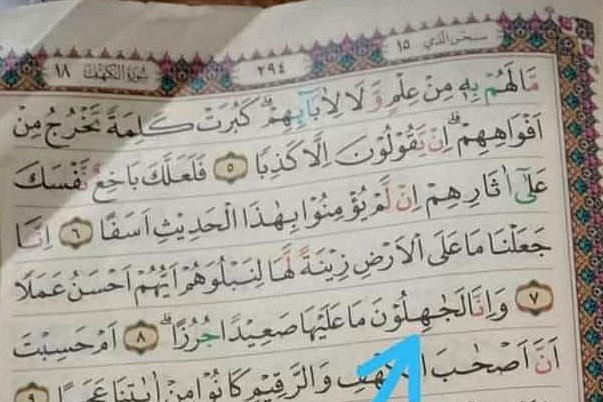 سبحن الذي ١٥ ٢٩٤ سُوْرَةُ الْكَهْفِ ١٨
مَّا لَهُمْ بِهٖ مِنْ عِلْمٍ وَّلَا لِاٰبَاۤىِٕهِمْۗ كَبُرَتْ كَلِمَةً تَخْرُجُ مِنْ
اَفْوَاهِهِمْۗ اِنْ يَّقُوْلُوْنَ اِلَّا كَذِبًا ٥ فَلَعَلَّكَ بَاخِعٌ نَّفْسَكَ
عَلٰٓى اٰثَارِهِمْ اِنْ لَّمْ يُؤْمِنُوْا بِهٰذَا الْحَدِيْثِ اَسَفًا ٦ اِنَّا
جَعَلْنَا مَا عَلَى الْاَرْضِ زِيْنَةً لَّهَا لِنَبْلُوَهُمْ اَيُّهُمْ اَحْسَنُ عَمَلًا
٧ وَاِنَّا لَجٰهِلُوْنَ مَا عَلَيْهَا صَعِيْدًا جُرُزًاۗ ٨ اَمْ حَسِبْتَ
اَنَّ اَصْحٰبَ وَالرَّقِيْمِ كَانُوْا مِنْ اٰيٰتِنَا عَجَبًا ٩